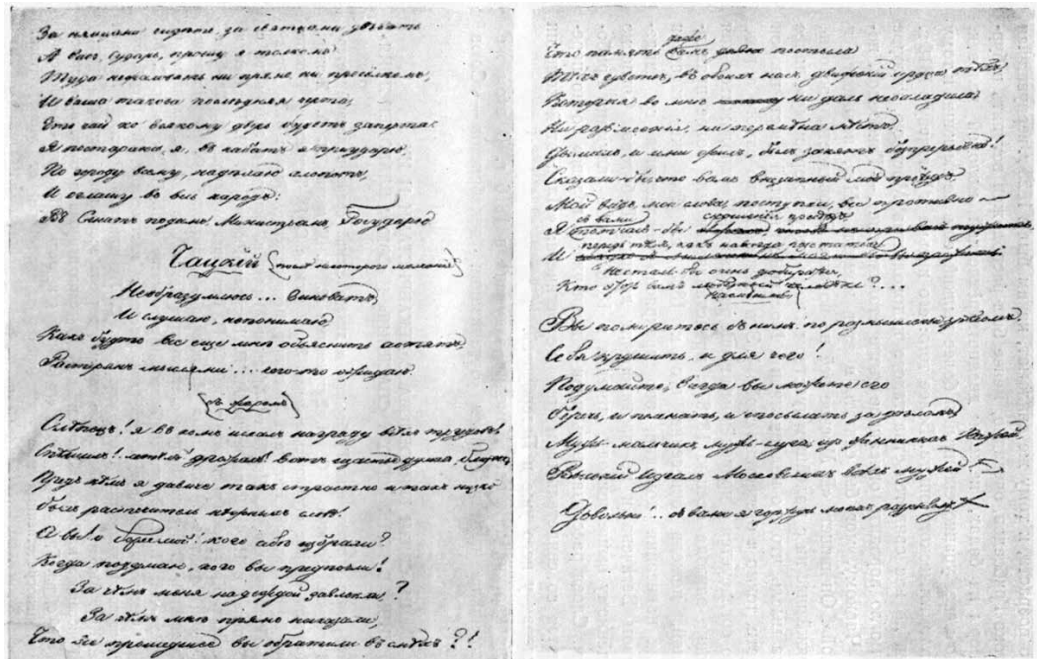 За пяльцами сидѣть за святцами зѣвать
А васъ, сударь, прошу я толкомъ
Туда не жаловать ни прямо ни просёлкомъ,
И ваша такова послѣдняя черта,
Что чай ко всякому дверь будетъ заперта:
Я постараюсь, я, въ набатъ я пріударю
По городу всему, надѣлаю хлопотъ,
И оглашу во весь народъ:
Въ Сенатъ подамъ! Министрамъ, Государю
Чацкій (послѣ некоторого молчанія)
Не образумлюсь... виноватъ,
И слушаю, не понимаю
Какъ будто все еще мнѣ объяснить хотятъ,
Растерянъ мыслями... чего-то ожидаю
(съ жаромъ)
Слѣпецъ! я въ комъ искалъ награду всѣхъ трудовъ!
Спѣшилъ! летѣлъ! дрожалъ! вотъ щастье думалъ близко,
Предъ кѣмъ я давиче такъ страстно и такъ низко
Былъ расточитель нѣжныхъ словъ!
А вы! о Боже мой! кого себѣ избрали?
Когда подумаю, кого вы предпочли!
За чѣмъ меня надеждой завлекли?
За чѣмъ мнѣ прямо не сказали,
Что все прошедшее вы обратили въ смѣхъ?!
даже
Что память вамъ постыла
Тѣхъ чувствъ, въ обоихъ насъ движеній сердца тѣхъ,
Которыя во мнѣ ни даль не охладила
Ни развлеченія, ни перемѣна мѣстъ.
Дышалъ, и ими жилъ, былъ занятъ безпрерывно!
Сказали-бы что вамъ внезапный мой пріѣздъ
Мой видъ, мои слова, поступки, все противно
съ вами сношенія пресѣкъ
Я тотчасъ-бы
передъ тѣмъ, какъ навсегда разстаться
И
Не сталъ бы очень добираться,
Кто этотъ вамъ любезный человѣкъ?...
Вы помиритесь съ нимъ по размышленьи зрѣломъ.
Себя крушить, и для чего!
Подумайте, всегда вы можете его
Беречь, и пеленать, и спосылать за дѣломъ,
Мужъ-мальчикъ, мужъ-слуга, изъ жениныхъ пажей
Высокій идеалъ Московскихъ всѣхъ мужей.
Довольно!.. съ вами я горжусь моимъ разрывомъ